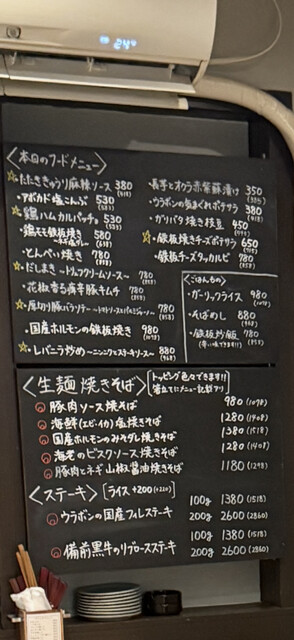 <本日のフードメニュー>
☆たたききゅうり麻辣ソース 380 (418)
・アボカド塩こんぶ 530 (583)
☆鶏ハムカルパッチョ 530 (583)
・鶏モモ鉄板焼き 580
・とんぺい焼き 780 (858)
☆だしまき 780 (858)
780 (858)
☆厚切り豚バラソテー 780 (858)
・国産ホルモンの鉄板焼 980 (1078)
☆レバニラ炒め 880 (968)
・長芋とオクラ赤紫蘇漬け 350 (385)
・ウラボンの気まぐれポテサラ 380 (418)
・ガリバタ焼き枝豆 450
☆鉄板焼きチーズポテサラ 650 (715)
・鉄板チーズタッカルビ 780 (858)
<ごはんもの>
・ガーリックライス 980 (1078)
・そばめし 880 (968)
・鉄板炒飯 780 (858)
<生麺焼きそば> トッピング色々できます!!
豚肉ソース焼そば 980 (1078)
海鮮(エビ・イカ)塩焼きそば 1280 (1408)
国産ホルモンのみそダレ焼きそば 1380 (1518)
海老のビスクソース焼きそば 1280 (1408)
豚肉とネギ山椒醤油焼きそば 1180 (1298)
<ステーキ> [ライス+200(+220)]
ウラボンの国産フィレステーキ 100g 1380 (1518)
200g 2600 (2860)
備前黒牛のリブロースステーキ 100g 1380 (1518)
200g 2600 (2860)